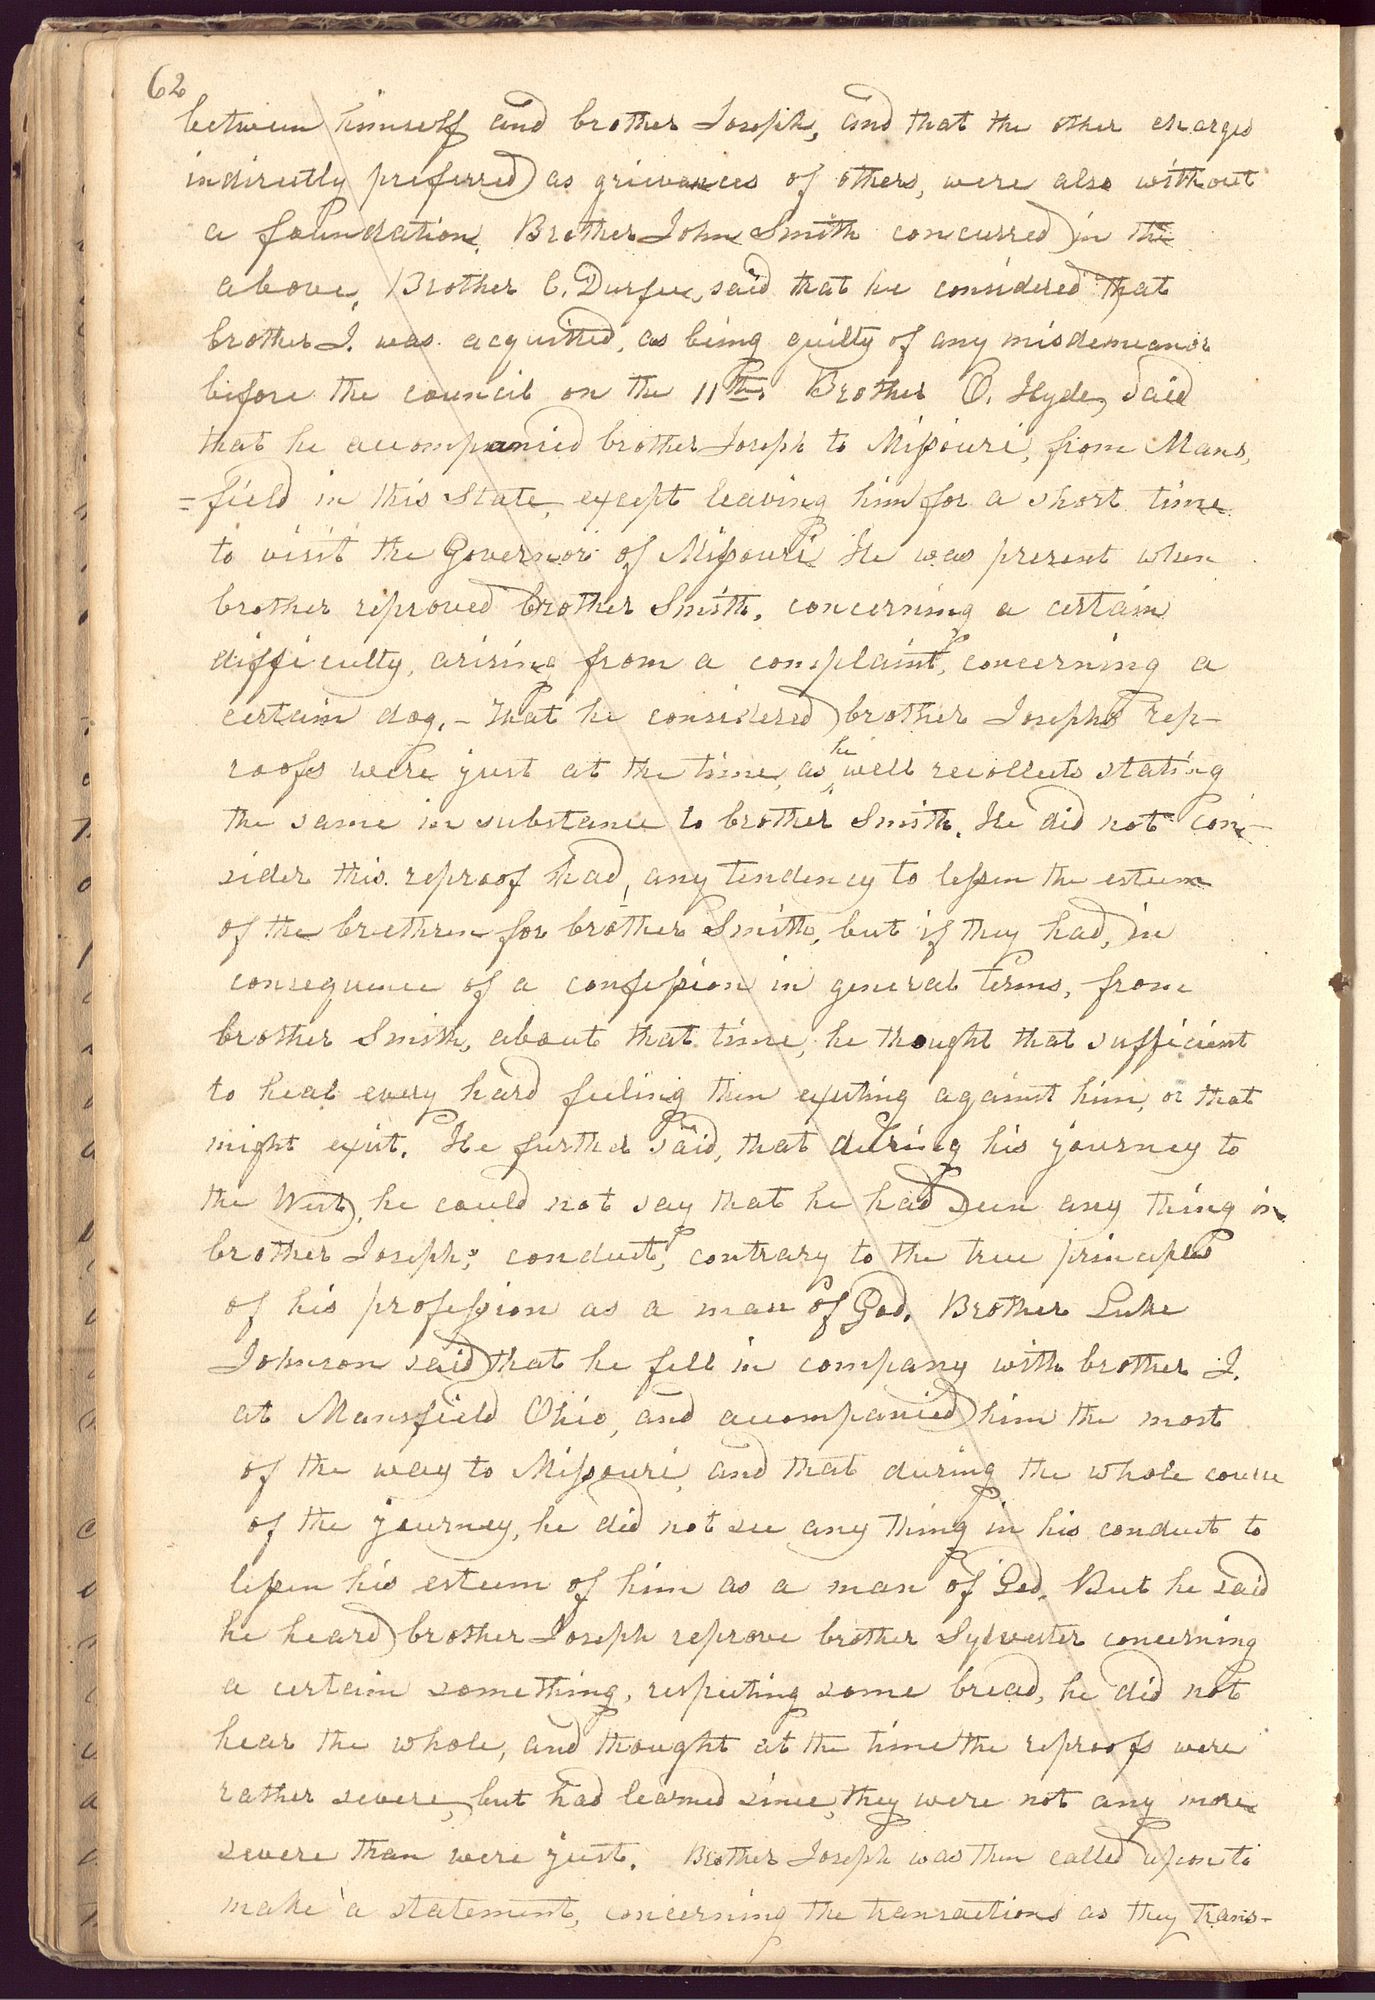 62
between himself and brother Joseph, and that the other charges
indirectly preferred as grievances of others, were also without
a foundation. Brother John Smith concurred in the
above. Brother C. Durfee, said that he considered that
brother J. was acquitted, as being guilty of any misdemeanor
before the council on the 11th. Brother O. Hyde, said
that he accompanied brother Joseph to Missouri, from Mans,
=field in this State, except leaving him for a short time
to visit the Governor of Missouri. He was present when
brother reproved brother Smith, concerning a certain
difficulty, arising from a complaint, concerning a
certain dog, – That he considered brother Joseph's rep-
roofs were just at the time, as he well recollects stating
the same in substance to brother Smith. He did not con-
sider this reproof had, any tendency to lessen the esteem
of the brethren for brother Smith, but if they had, in
consequence of a confession in general terms, from
brother Smith, about that time, he thought that sufficient
to heal every hard feeling then existing against him, or that
might exist. He further said, that during his journey to
the West, he could not say that he had seen any thing in
brother Joseph's conduct, contrary to the true principles
of his profession as a man of God. Brother Luke
Johnson said that he fell in company with brother J.
at Mansfield Ohio, and accompanied him the most
of the way to Missouri, and that during the whole course
of the journey, he did not see any thing in his conduct to
lessen his esteem of him as a man of God. But he said
he heard brother Joseph reprove brother Sylvester concerning
a certain something, respecting some bread, he did not
hear the whole, and thought at the time the reproofs were
rather severe, but had learned since, they were not any more
severe than were just. Brother Joseph was then called upon to
make a statement, concerning the transactions as they trans-